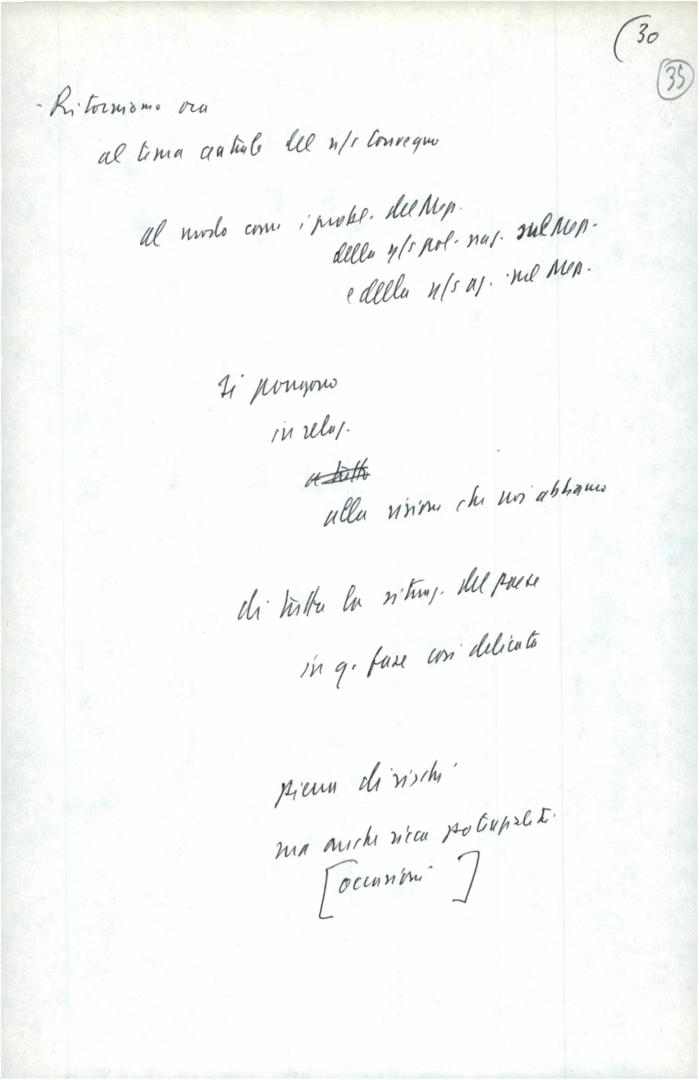 (30
35
- Ritorniamo ora
al tema centrale del n/s Convegno
al modo come i probl. del Mez.
della n/s pol. naz. sul Mez.
e della n/s az. nel Mez.
si pongono
in relaz.
a tutto
alla visione che noi abbiamo
di tutta la situaz. del paese
in q. fase così delicata
piena di rischi
ma anche ricca potenzialit.
[occasioni]